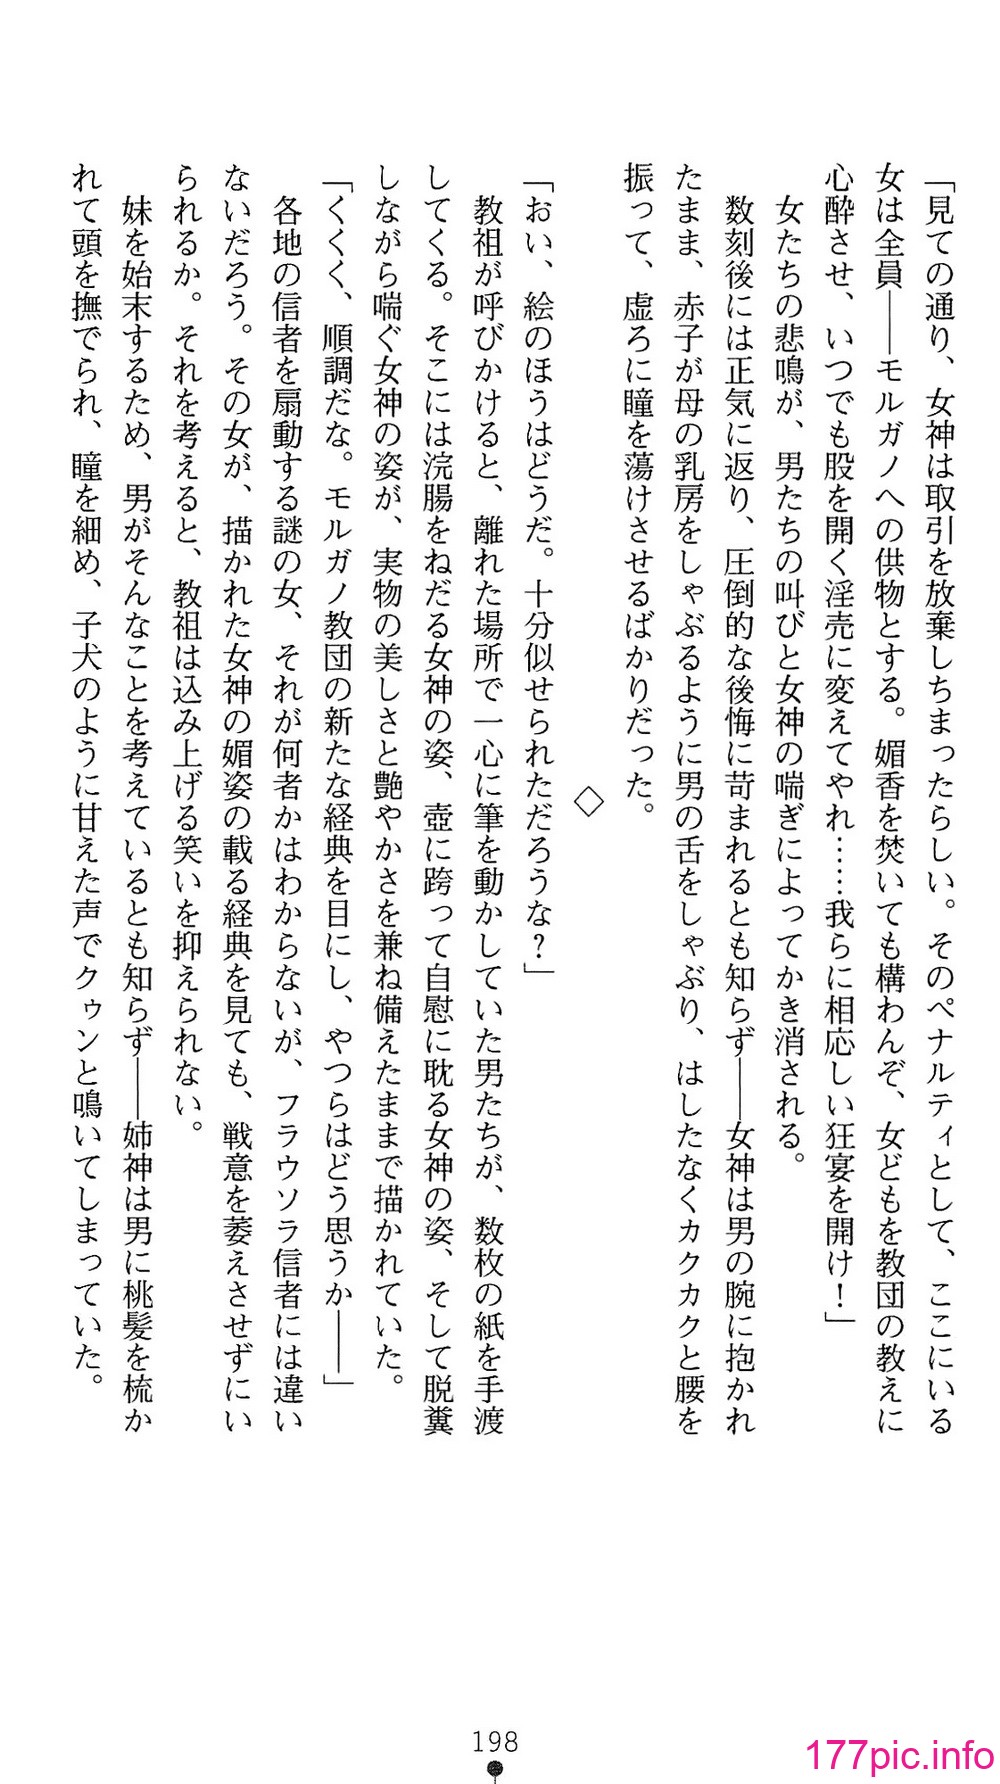 「見ての通り、女神は取引を放棄しちまったらしい。そのペナルティとして、ここにいる
女は全員――モルガノへの供物とする。媚香を焚いても構わんぞ、女どもを教団の教えに
心酔させ、いつでも股を開く淫売に変えてやれ……我らに相応しい狂宴を開け！」
女たちの悲鳴が、男たちの叫びと女神の喘ぎによってかき消される。
数刻後には正気に返り、圧倒的な後悔に苛まれるとも知らず――女神は男の腕に抱かれ
たまま、赤子が母の乳房をしゃぶるように男の舌をしゃぶり、はしたなくカクカクと腰を
振って、虚ろに瞳を蕩けさせるばかりだった。
◇
「おい、絵のほうはどうだ。十分似せられただろうな？」
教祖が呼びかけると、離れた場所で一心に筆を動かしていた男たちが、数枚の紙を手渡
してくる。そこには浣腸をねだる女神の姿、壺に跨って自慰に耽る女神の姿、そして脱糞
しながら喘ぐ女神の姿が、実物の美しさと艶やかさを兼ね備えたままで描かれていた。
「くくく、順調だな。モルガノ教団の新たな経典を目にし、やつらはどう思うか――」
各地の信者を扇動する謎の女、それが何者かはわからないが、フラウソラ信者には違い
ないだろう。その女が、描かれた女神の媚姿の載る経典を見ても、戦意を萎えさせずにい
られるか。それを考えると、教祖は込み上げる笑いを抑えられない。
妹を始末するため、男がそんなことを考えているとも知らず――姉神は男に桃髪を梳か
れて頭を撫でられ、瞳を細め、子犬のように甘えた声でクゥンと鳴いてしまっていた。
198
177pic.info